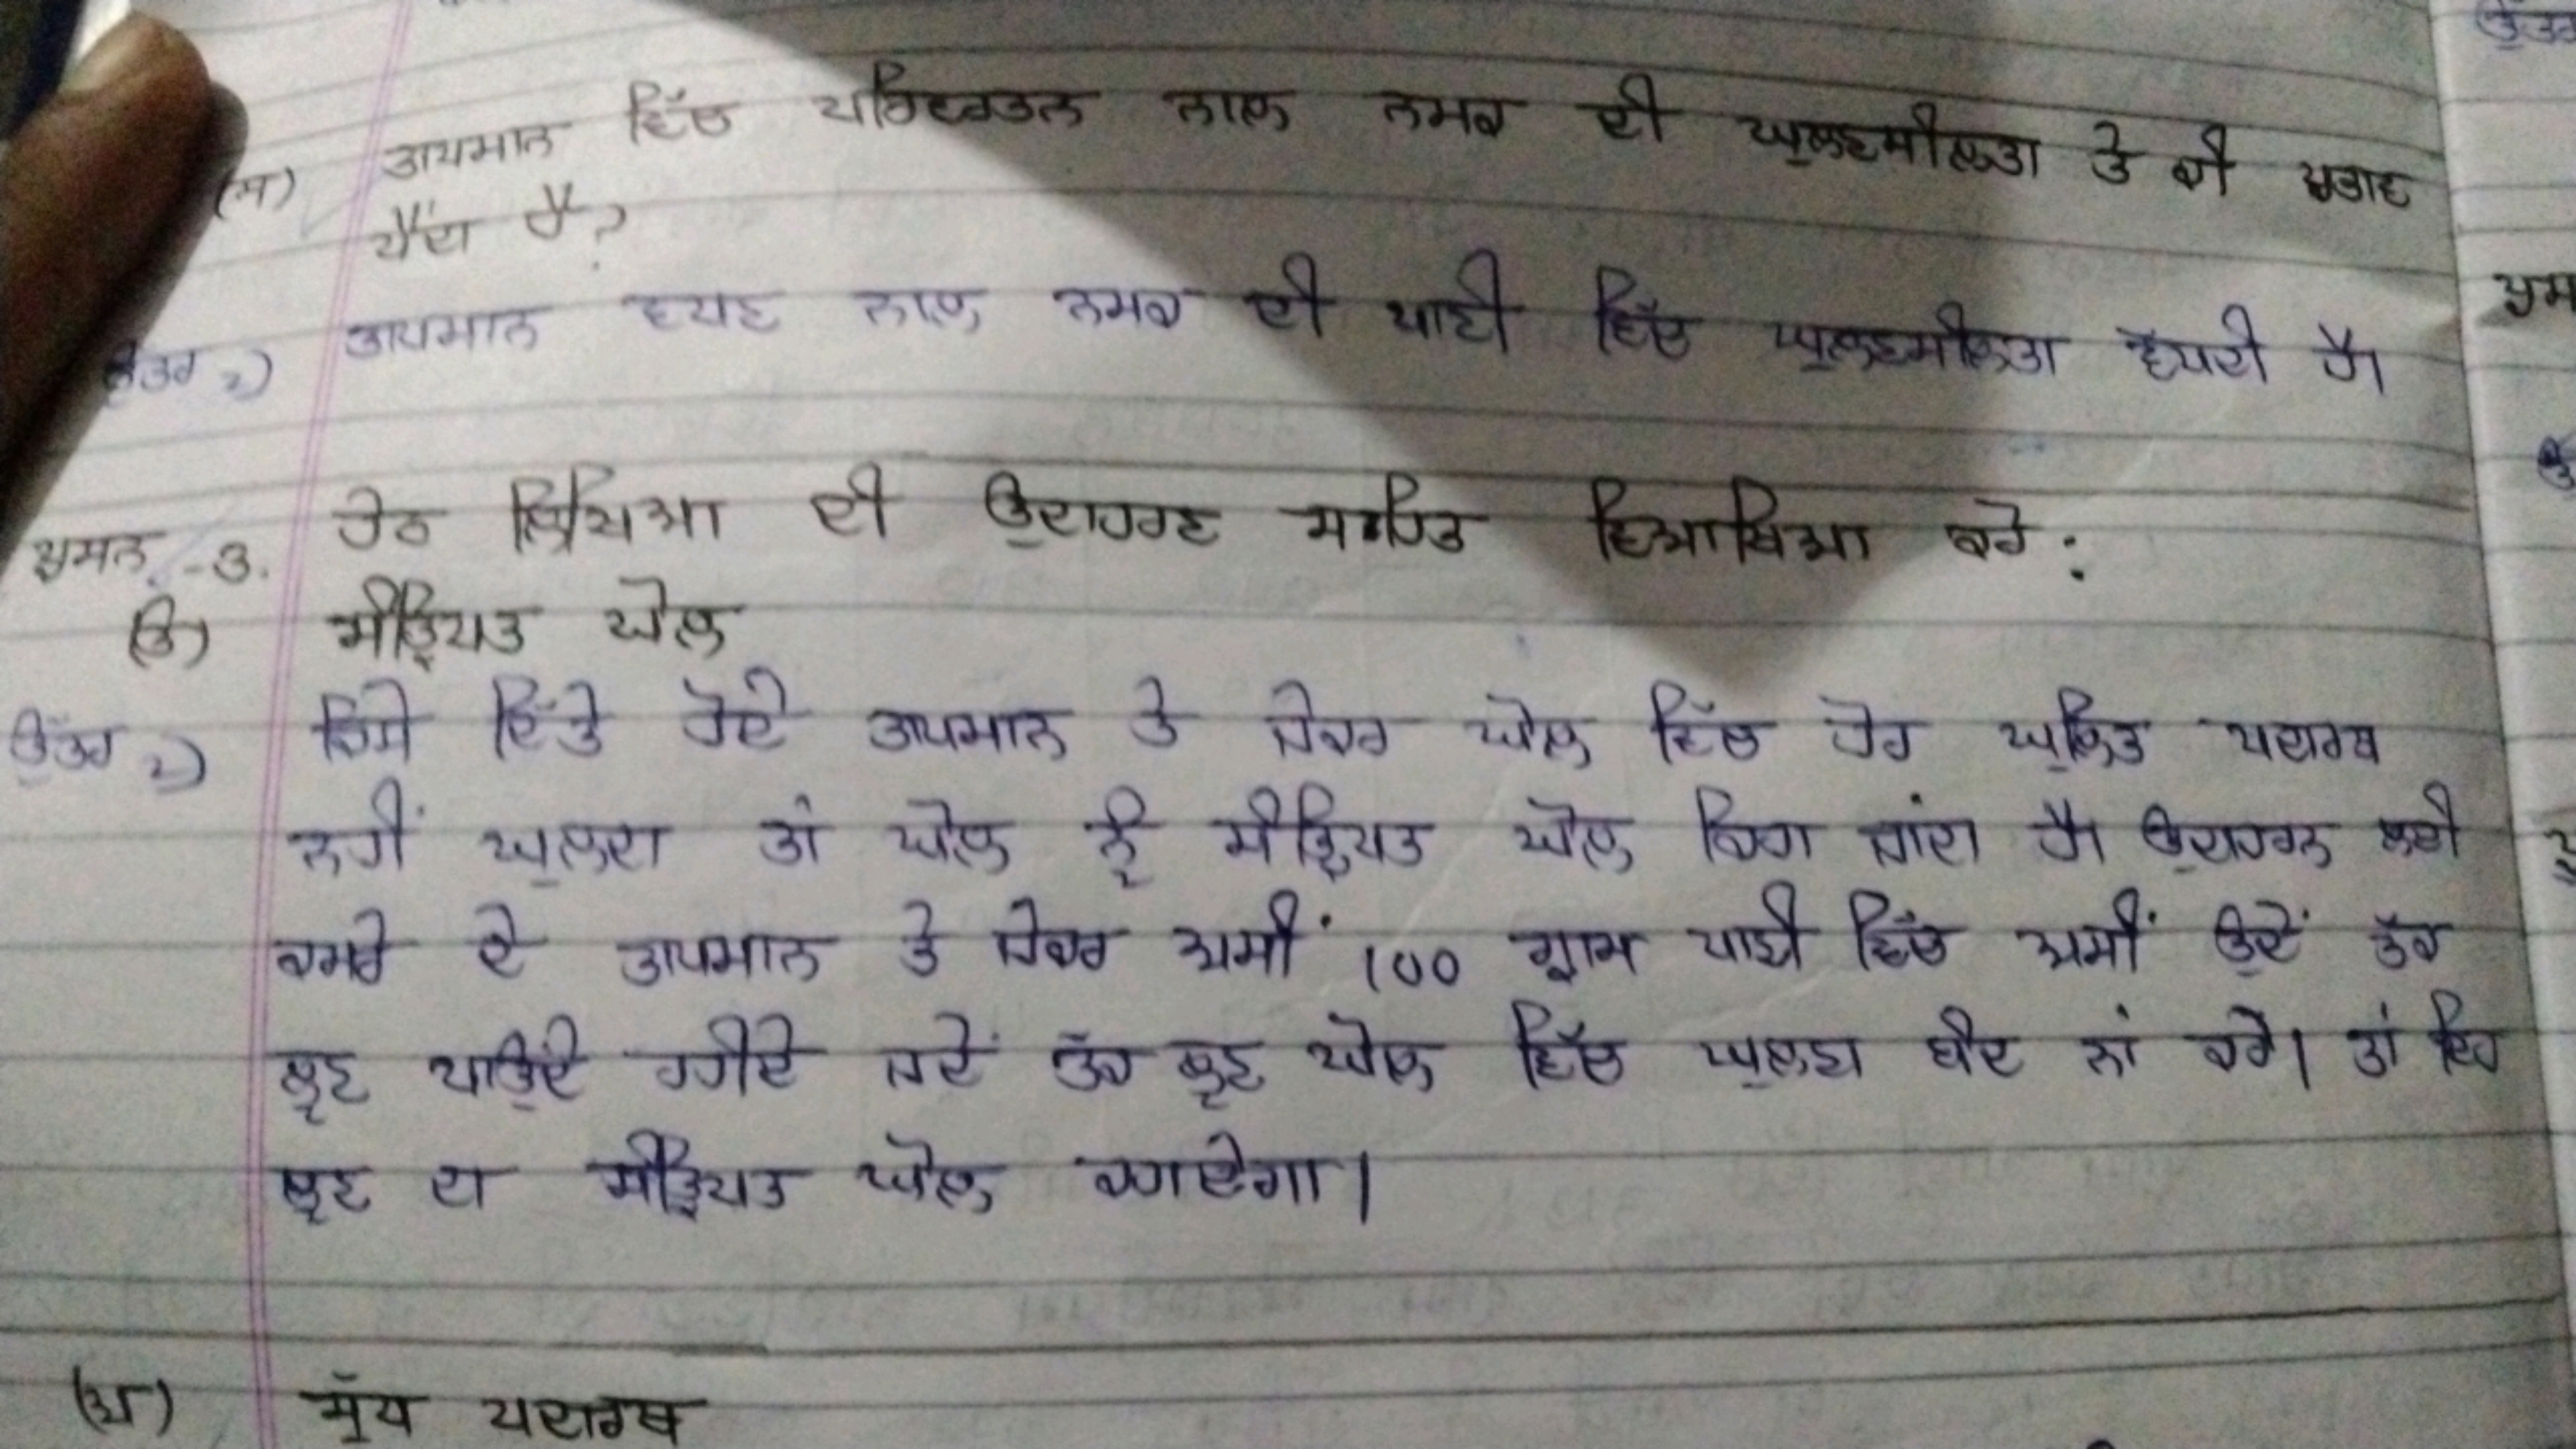 (ਸ) ਤਾਪਮਾਨ ਵਿੱਚ ਪਰਿਵਰਤਨ ਨਾਲ ਨਮਕ ਦੀ ਘੁਲਣਸ਼ੀਲਤਾ ਤੇ ਕੀ ਪ੍ਰਭਾਵ
ਪੈਂਦਾ ਹੈ?
ਉੱਤਰ 2) ਤਾਪਮਾਨ ਵਧਣ ਨਾਲ ਨਮਕ ਦੀ ਪਾਣੀ ਵਿੱਚ ਘੁਲਣਸੀਲਤਾ ਵੱਧਦੀ ਹੈ।
ਪ੍ਰਸਨ -3. ਹੇਠ ਲਿਖਿਆ ਦੀ ਉਦਾਹਰਣ ਸਹਿਤ ਵਿਆਖਿਆ ਕਰੋ:
(ੳ) ਸੰਤ੍ਰਿਪਤ ਘੋਲ
ਉੱਤਰ 2) ਕਿਸੇ ਦਿੱਤੇ ਹੋਏ ਤਾਪਮਾਨ ਤੇ ਜੇਕਰ ਘੋਲ ਵਿੱਚ ਹੋਰ ਘੁਲਿਤ ਪਦਾਰਥ
ਨਹੀਂ ਘੁਲਦਾ ਤਾਂ ਘੋਲ ਨੂੰ ਸੰਤ੍ਰਿਪਤ ਘੋਲ ਕਿਹਾ ਜਾਂਦਾ ਹੈ। ਉਦਾਹਰਨ ਲਈ
ਕਮਰੇ ਦੇ ਤਾਪਮਾਨ ਤੇ ਜੇਕਰ ਅਸੀਂ 100 ਗ੍ਰਾਮ ਪਾਣੀ ਵਿੱਚ ਅਸੀਂ ਉਦੋਂ ਤੱਕ
ਲੂਣ ਪਾਉਂਦੇ ਰਹੀਏ ਜਦੋਂ ਤੱਕ ਲੂਣ ਘੋਲ ਵਿੱਚ ਘੁਲਣਾ ਬੰਦ ਨਾਂ ਕਰੇ। ਤਾਂ ਇਹ
ਲੂਣ ਦਾ ਸੰਤ੍ਰਿਪਤ ਘੋਲ ਕਹਾਏਗਾ।
(ਅ) ਸ਼ੁੱਧ ਪਦਾਰਥ